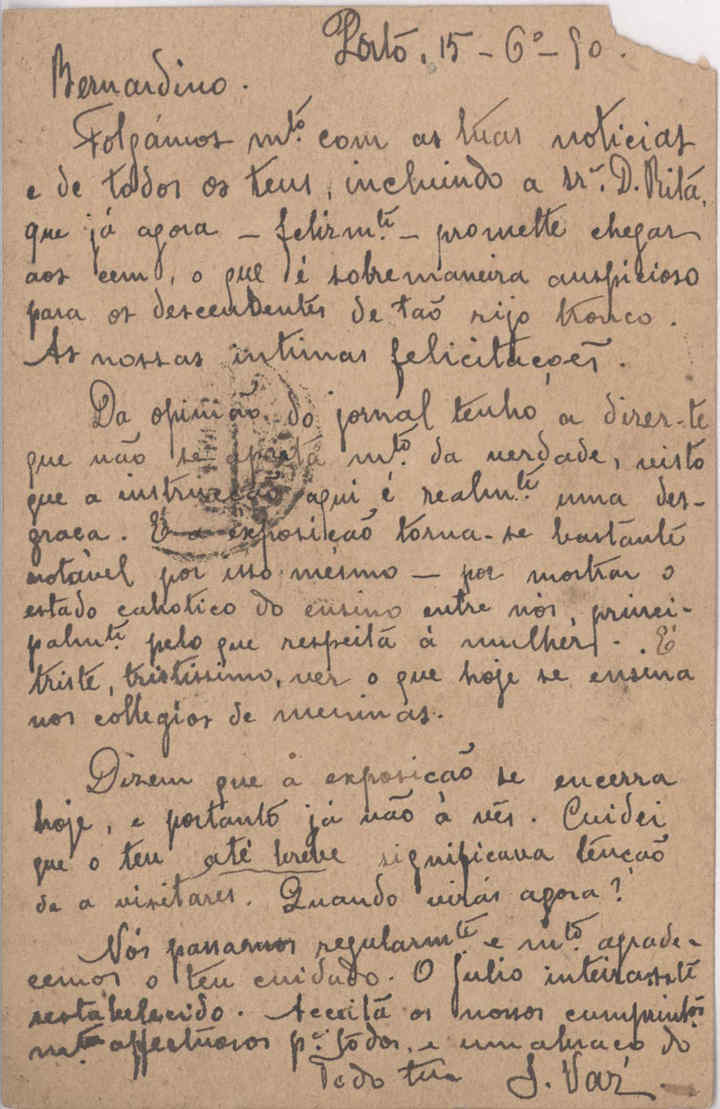 Porto, 15-6º-90.
Bernardino.
Folgámos mto. com as tuas noticias
e de todos os teus, incluindo a srª. D. Rita,
que já agora – felizmte. – promette chegar
aos cem, o que é sobremaneira auspicioso
para os descendentes de tão rijo tronco.
As nossas intimas felicitações.
Da opinião do jornal tenho a dizer-te
que não se aparta mto. da verdade, visto
que a instrucção aqui é realmte. uma des-
graça. E a exposição torna-se bastante
notável por isso mesmo – por mostrar o
estado cahotico do ensino entre nós, princi-
palmte. pelo que respeita á mulher. É
triste, tristissimo, ver o que hoje se ensina
nos collegios de meninas.
Dizem que a exposição se encerra
hoje, e portanto já não a vês. Cuidei
que o teu até breve significava tenção
de a visitares. Quando virás agora?
Nós passamos regularmte. e mto. agrade-
cemos o teu cuidado. O Julio inteiramte
restabelecido. Acceita os nossos cumprimtos.
mto affectuosos pª. todos, e um abraço do
Todo teu J. Vaz